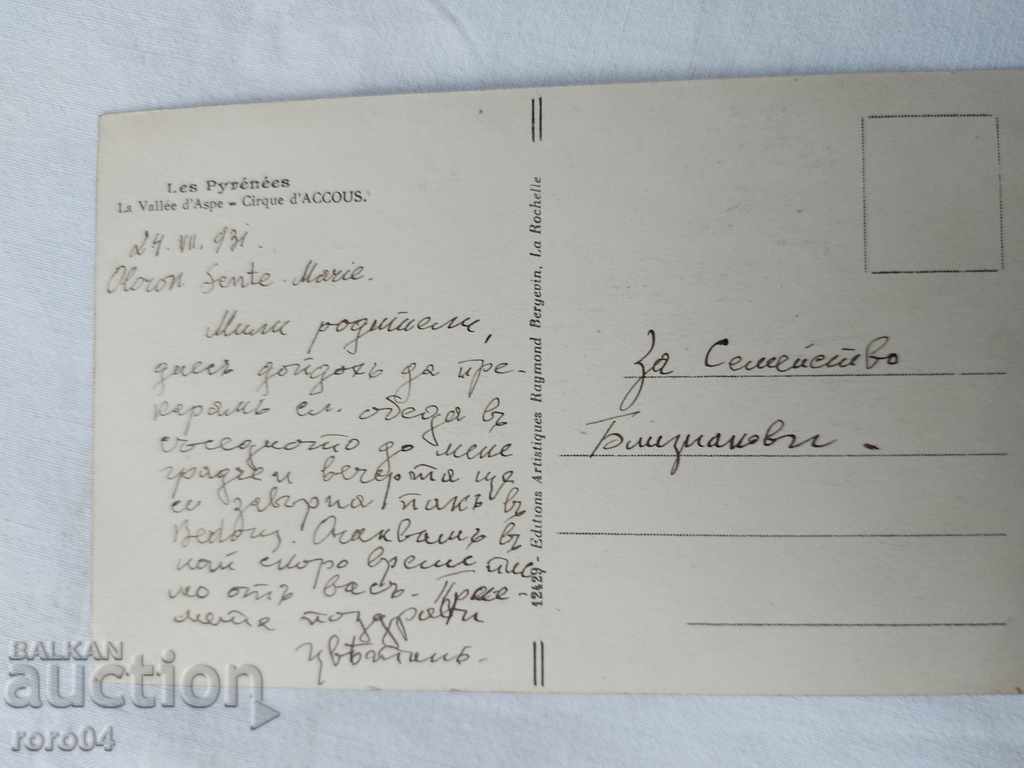 Les Pyrénées
La Vallée d'Aspe - Cirque d'ACCOUS.
24. VII. 931.
Oloron Sente-Marie.
Мили родители,
днесъ дойдохъ да пре-
карамъ сл. обеда въ
съседното до мене
градче и вечерта ще
се завърна пакъ въ
Bedous. Очаквамъ въ
най скоро време пис
мо отъ васъ. Прие-
мете поздрави
Цвѣтанъ.
12429 - Editions Artistiques Raymond Bergevin, La Rochelle
За Семейство
Близнакови.
BALKAN
auction
roro04